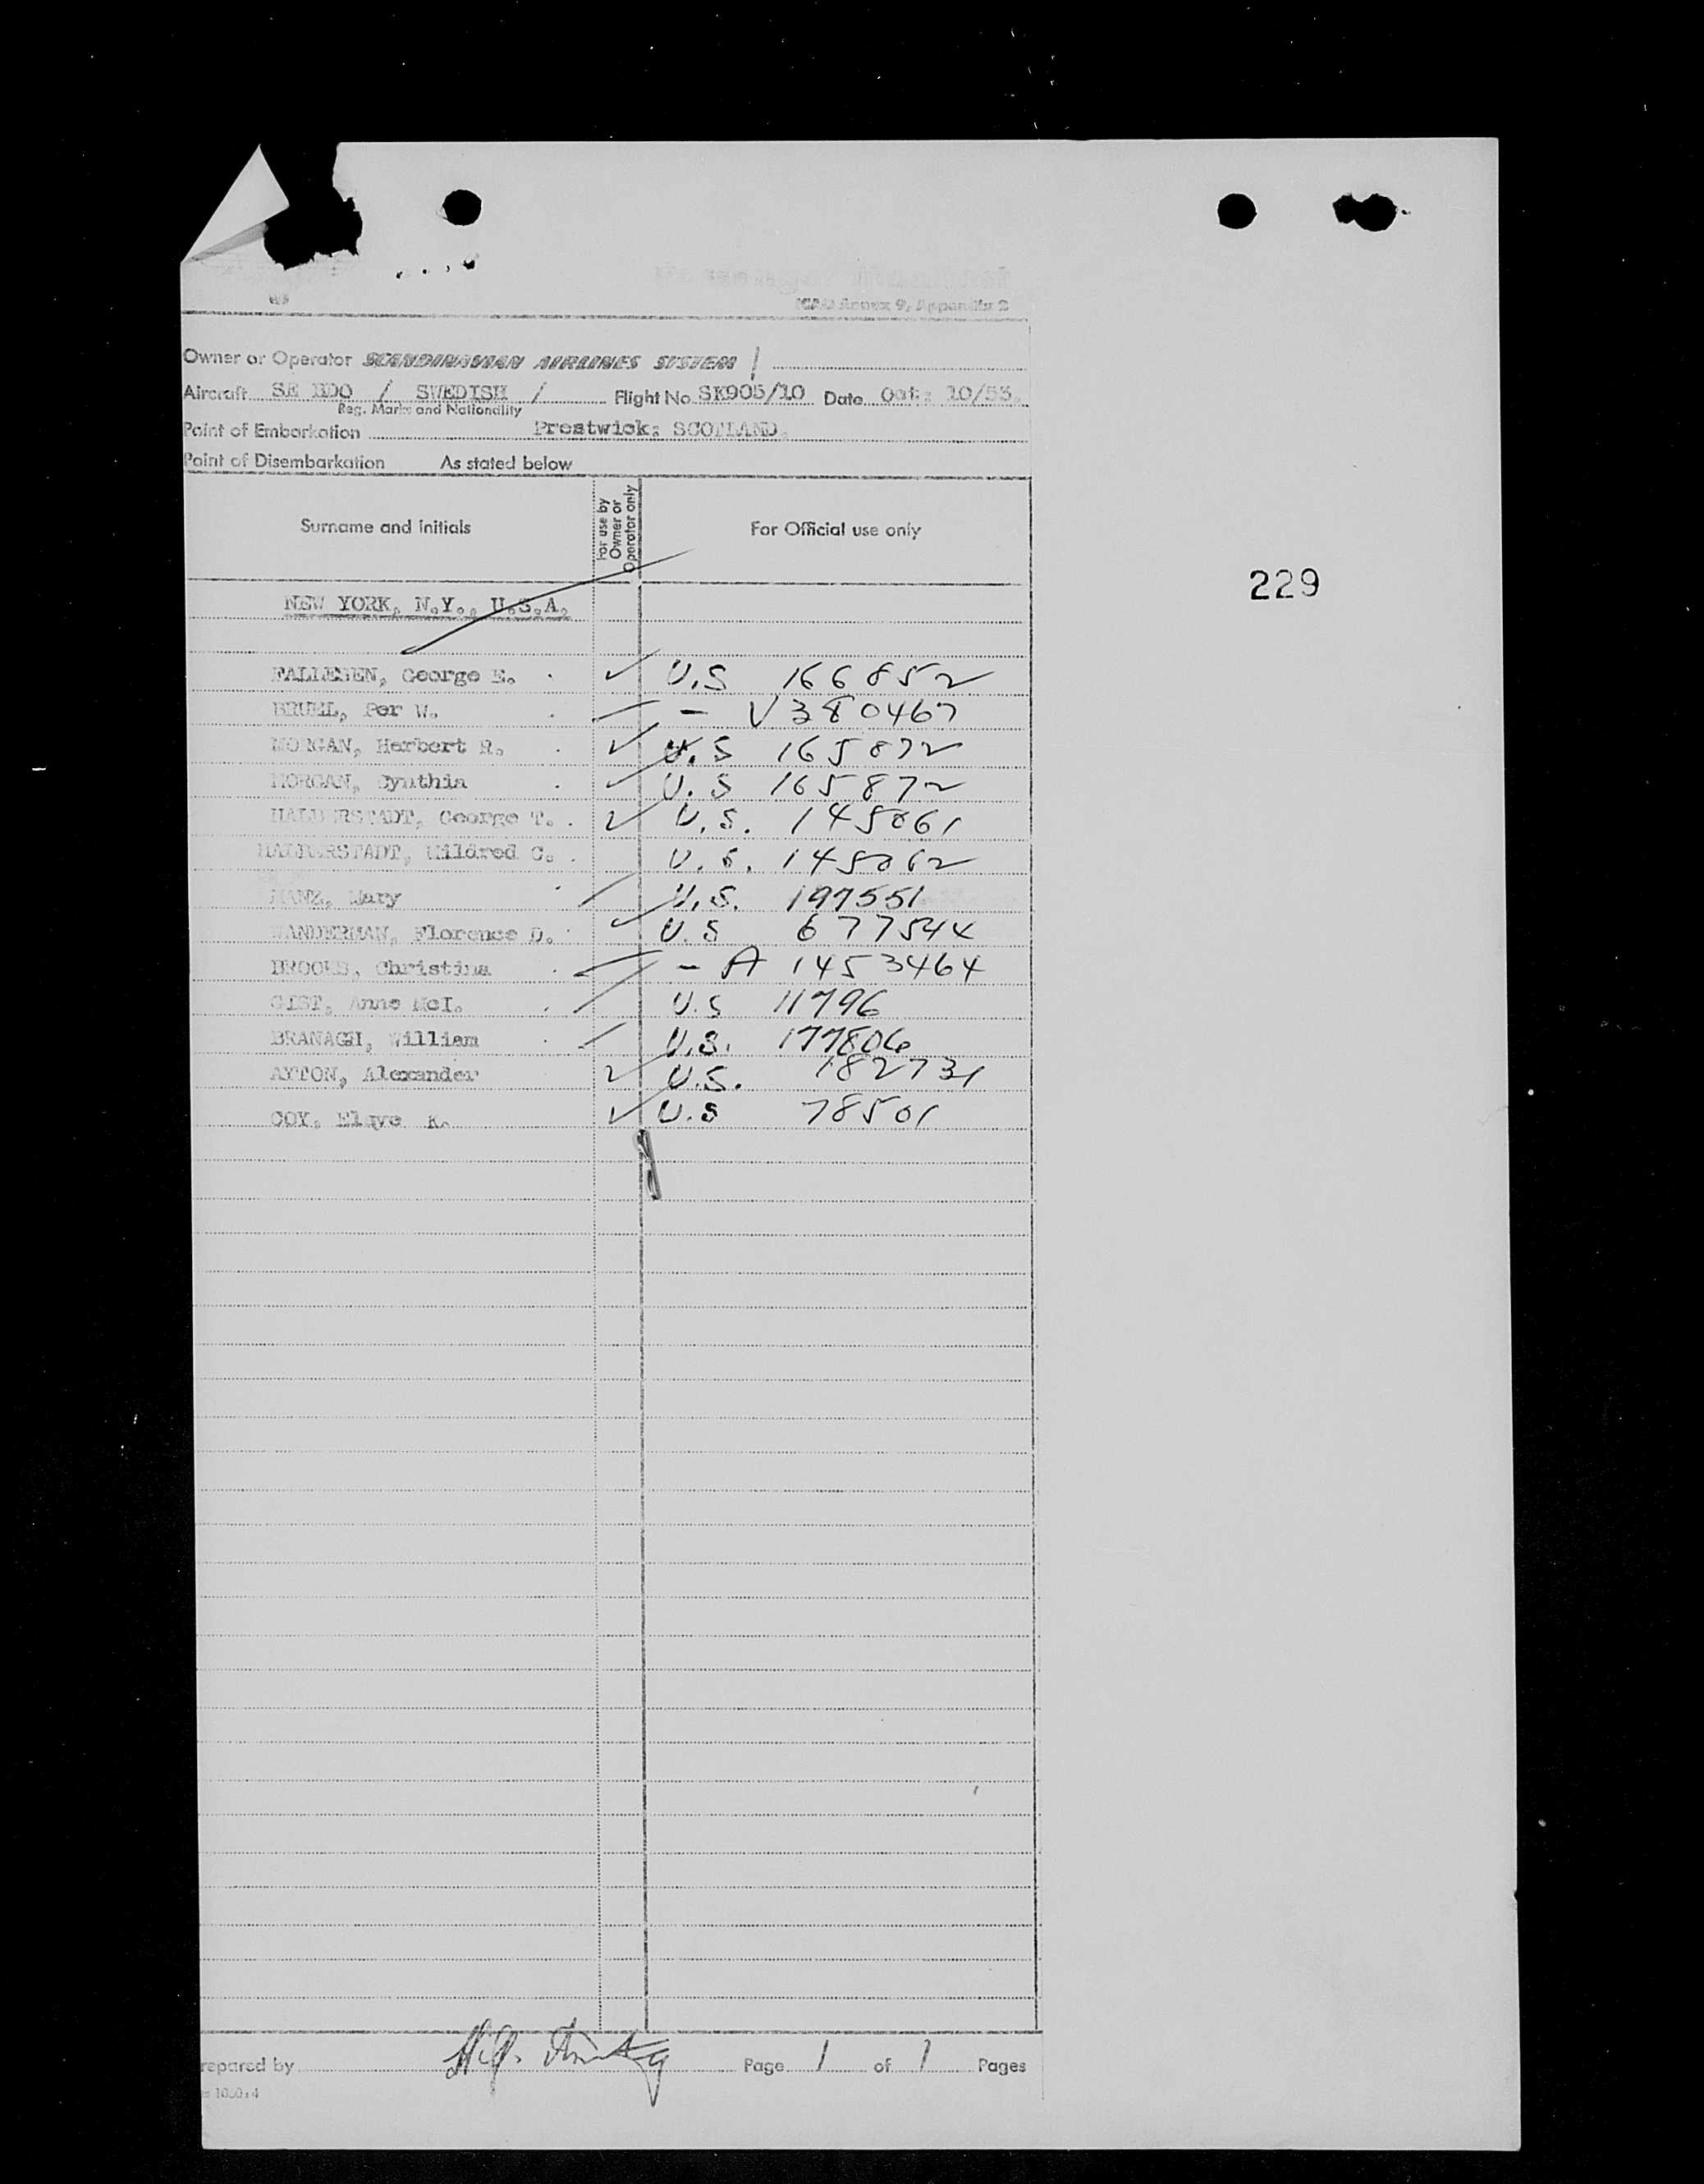 ICAO Annex 9, Appendix 2
Owner or Operator SCANDINAVIAN AIRLINES SYSTEM /
Aircraft SE BDO / SWEDISH / Flight No. SK905/10 Date Oct: 10/53.
Reg. Marks and Nationality
Point of Embarkation Prestwick: SCOTLAND.
Point of Disembarkation As stated below
Surname and initials For use by Owner or Operator only For Official use only
229
NEW YORK, N.Y., U.S.A.
FALLESEN, George E. ✓ U.S 166852
BRUEL, Per W. - V380467
MORGAN, Herbert R. ✓ U.S 165872
MORGAN, Cynthia ✓ U.S 165872
HALBERSTADT, George T. ✓ U.S. 145061
HALBERSTADT, Mildred C. U.S. 145062
Mary U.S. 197551
WANDERMAN, Florence D. ✓ U.S 677544
BROOKS, Christina - A 1453464
GIST, Anne McI. U.S 11796
BRANAGH, William U.S. 177806
AYTON, Alexander ✓ U.S. 182731
COY, Elaye K. ✓ U.S 78501
repared by Page 1 of 1 Pages